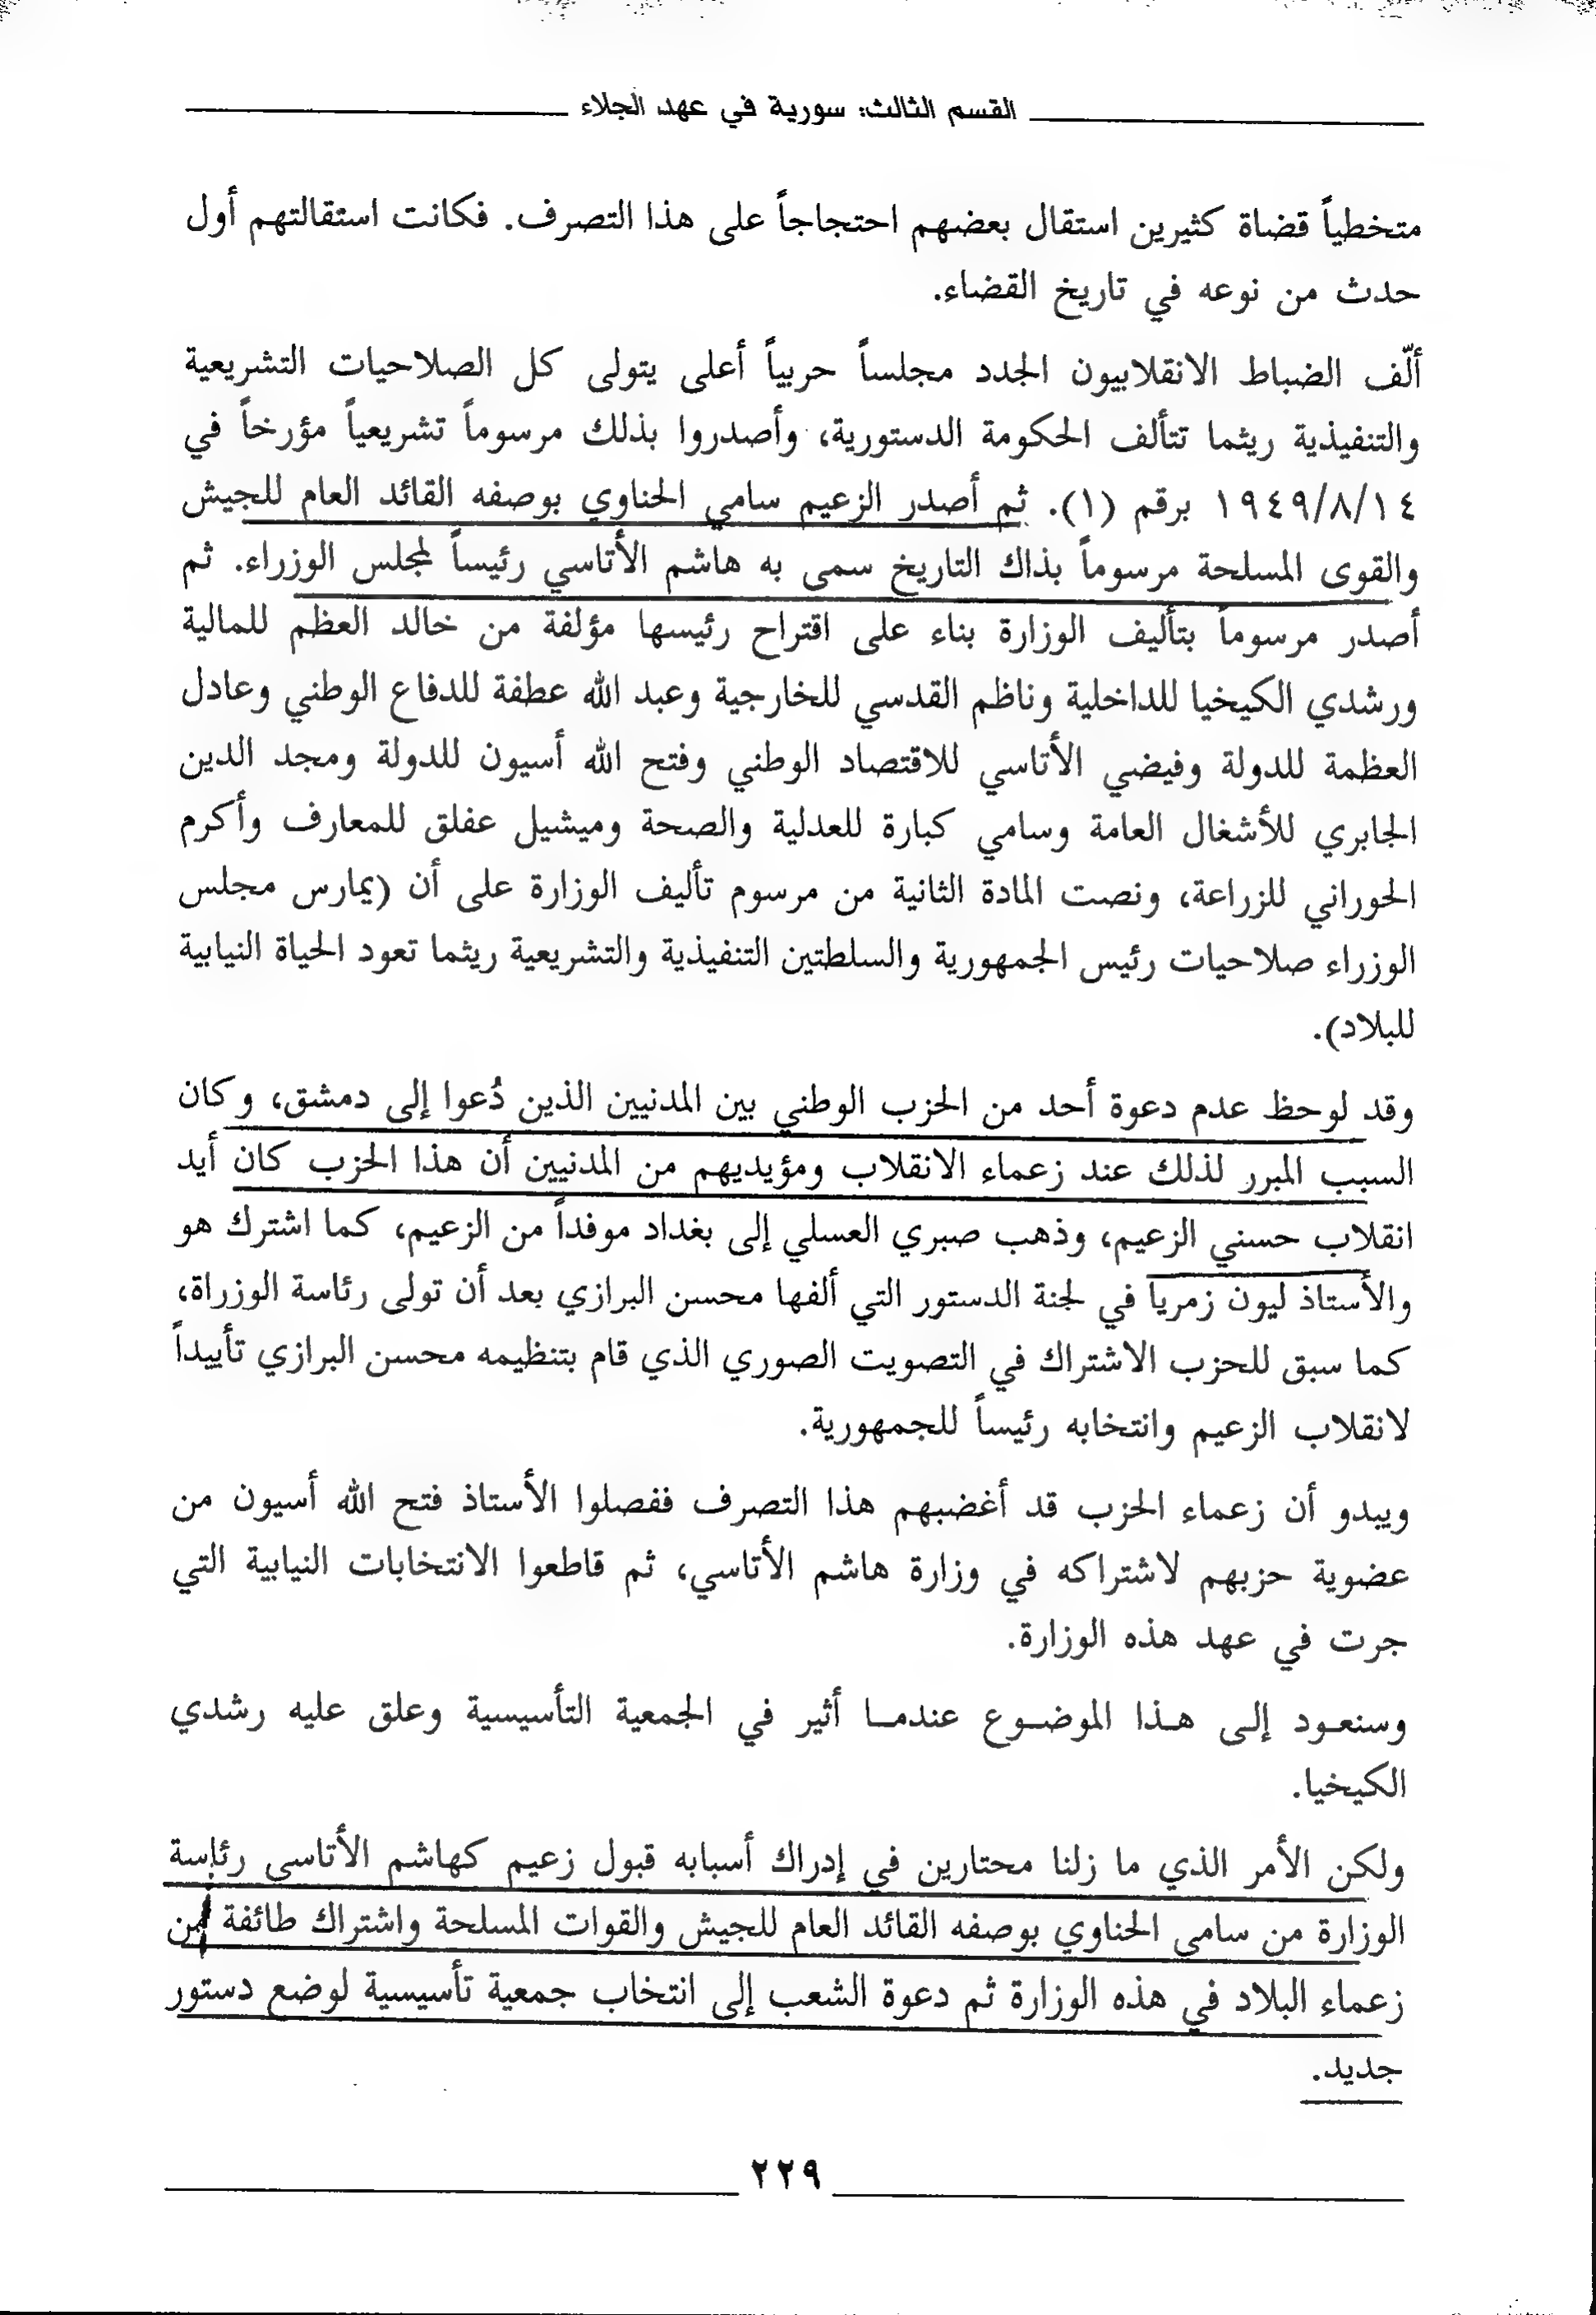 القسم الثالث: سورية في عهد الجلاء
متخطياً قضاة كثيرين استقال بعضهم احتجاجاً على هذا التصرف. فكانت استقالتهم أول
حدث من نوعه في تاريخ القضاء.
ألّف الضباط الانقلابيون الجدد مجلساً حربياً أعلى يتولى كل الصلاحيات التشريعية
والتنفيذية ريثما تتألف الحكومة الدستورية، وأصدروا بذلك مرسوماً تشريعياً مؤرخاً في
١٩٤٩/٨/١٤ برقم (١). ثم أصدر الزعيم سامي الحناوي بوصفه القائد العام للجيش
والقوى المسلحة مرسوماً بذاك التاريخ سمى به هاشم الأتاسي رئيساً لمجلس الوزراء. ثم
أصدر مرسوماً بتأليف الوزارة بناء على اقتراح رئيسها مؤلفة من خالد العظم للمالية
ورشدي الكيخيا للداخلية وناظم القدسي للخارجية وعبد الله عطفة للدفاع الوطني وعادل
العظمة للدولة وفيضي الأتاسي للاقتصاد الوطني وفتح الله أسيون للدولة ومجد الدين
الجابري للأشغال العامة وسامي كبارة للعدلية والصحة وميشيل عفلق للمعارف وأكرم
الحوراني للزراعة، ونصت المادة الثانية من مرسوم تأليف الوزارة على أن (يمارس مجلس
الوزراء صلاحيات رئيس الجمهورية والسلطتين التنفيذية والتشريعية ريثما تعود الحياة النيابية
للبلاد).
وقد لوحظ عدم دعوة أحد من الحزب الوطني بين المدنيين الذين دُعوا إلى دمشق، وكان
السبب المبرر لذلك عند زعماء الانقلاب ومؤيديهم من المدنيين أن هذا الحزب كان أيد
انقلاب حسني الزعيم، وذهب صبري العسلي إلى بغداد موفداً من الزعيم، كما اشترك هو
والأستاذ ليون زمريا في لجنة الدستور التي ألفها محسن البرازي بعد أن تولى رئاسة الوزراة،
كما سبق للحزب الاشتراك في التصويت الصوري الذي قام بتنظيمه محسن البرازي تأييداً
لانقلاب الزعيم وانتخابه رئيساً للجمهورية.
ويبدو أن زعماء الحزب قد أغضبهم هذا التصرف ففصلوا الأستاذ فتح الله أسيون من
عضوية حزبهم لاشتراكه في وزارة هاشم الأتاسي، ثم قاطعوا الانتخابات النيابية التي
جرت في عهد هذه الوزارة.
وسنعود إلى هذا الموضوع عندما أثير في الجمعية التأسيسية وعلق عليه رشدي
الكيخيا.
ولكن الأمر الذي ما زلنا محتارين في إدراك أسبابه قبول زعيم كهاشم الأتاسي رئاسة
الوزارة من سامي الحناوي بوصفه القائد العام للجيش والقوات المسلحة واشتراك طائفة من
زعماء البلاد في هذه الوزارة ثم دعوة الشعب إلى انتخاب جمعية تأسيسية لوضع دستور
جديد.
٢٢٩